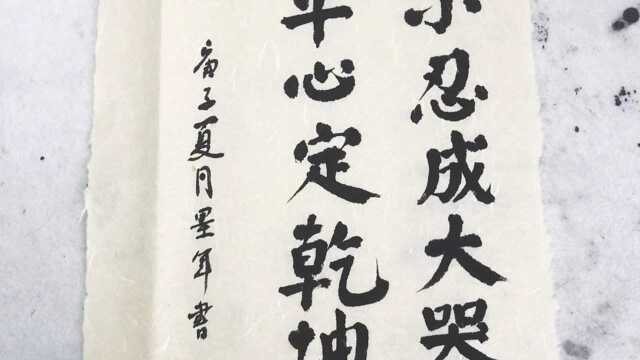 忍成大器
平心定乾坤
庚子夏月墨年書